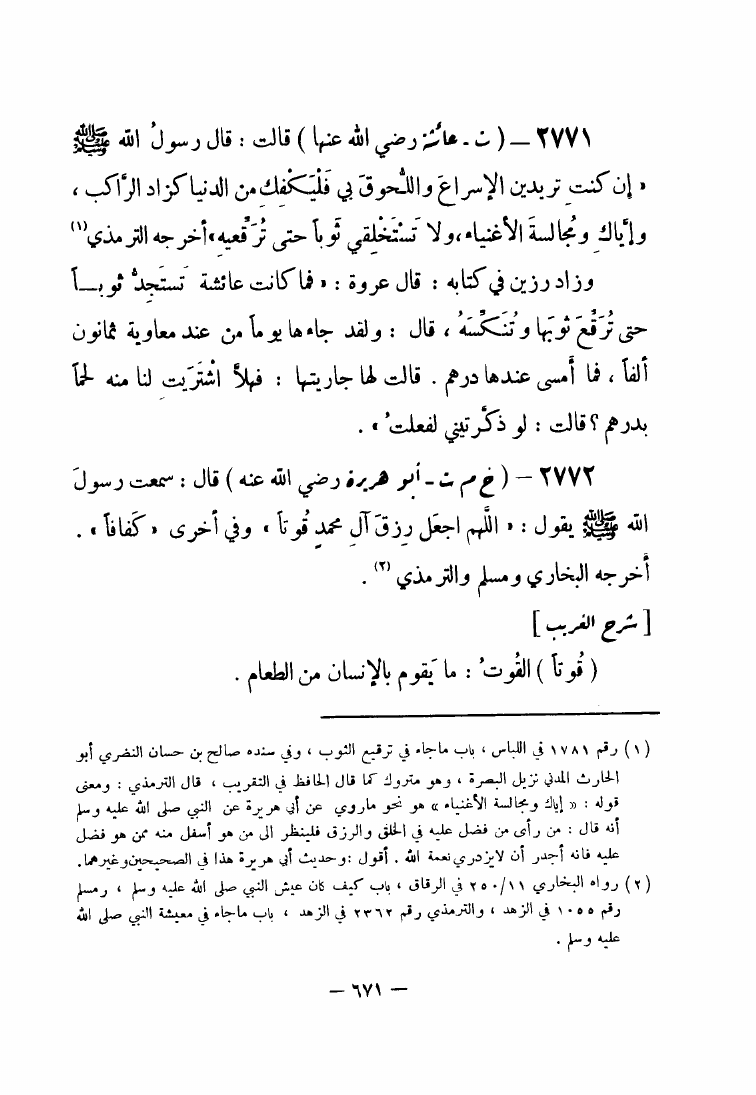 ٢٧٧١ – ( ت - عائشة رضي الله عنها ) قالت : قال رسولُ الله ﷺ
« إن كنتِ تريدين الإسراعَ واللُّحوقَ بي فَلْيَكْفِكِ من الدنيا كزاد الرَّاكب ،
وإيَّاكِ ومُجالسةَ الأغنياء ،ولا تَسْتَخْلِقي ثَوباً حتى تُرَقِّعيه» أخرجه الترمذي(١)
وزاد رزين في كتابه : قال عروة : « فما كانت عائشة تَستَجِدُّ ثوبـــاً
حتى تُرَقِّعَ ثوبَها وتُنَكِّسَهُ ، قال : ولقد جاءها يوماً من عند معاوية ثمانون
ألفاً ، فما أمسى عندها درهم . قالت لها جاريتها : فهلاَّ اشْتَرَيتِ لنا منه لحماً
بدرهم ؟ قالت : لو ذكَّرتيني لفعلتُ » .
٢٧٧٢ – ( خ م ت - أبو هريرة رضي الله عنه ) قال : سمعت رسولَ
الله ﷺ يقول : « اللَّهم اجعَل رِزقَ آلِ محمدٍ قُوتاً » وفي أخرى « كَفافاً » .
أخرجه البخاري ومسلم والترمذي (٢) .
[ شرح الغريب ]
( قُوتاً ) القُوتُ : ما يَقوم بالإنسان من الطعام .
(١) رقم ١٧٨١ في اللباس ، باب ماجاء في ترقيع الثوب ، وفي سنده صالح بن حسان النضري أبو
الحارث المدني نزيل البصرة ، وهو متروك كما قال الحافظ في التقريب ، قال الترمذي : ومعنى
قوله : « إياك ومجالسة الأغنياء » هو نحو ماروي عن أبي هريرة عن النبي صلى الله عليه وسلم
أنه قال : من رأى من فضل عليه في الخلق والرزق فلينظر الى من هو أسفل منه ممن هو فضل
عليه فانه أجدر أن لايزدري نعمة الله . أقول :وحديث أبي هريرة هذا في الصحيحين وغيرهما.
(٢) رواه البخاري ٢٥٠/١١ في الرقاق ، باب كيف كان عيش النبي صلى الله عليه وسلم ، ومسلم
رقم ١٠٥٥ في الزهد ، والترمذي رقم ٢٣٦٢ في الزهد ، باب ماجاء في معيشة النبي صلى الله
عليه وسلم .
– ٦٧١ –